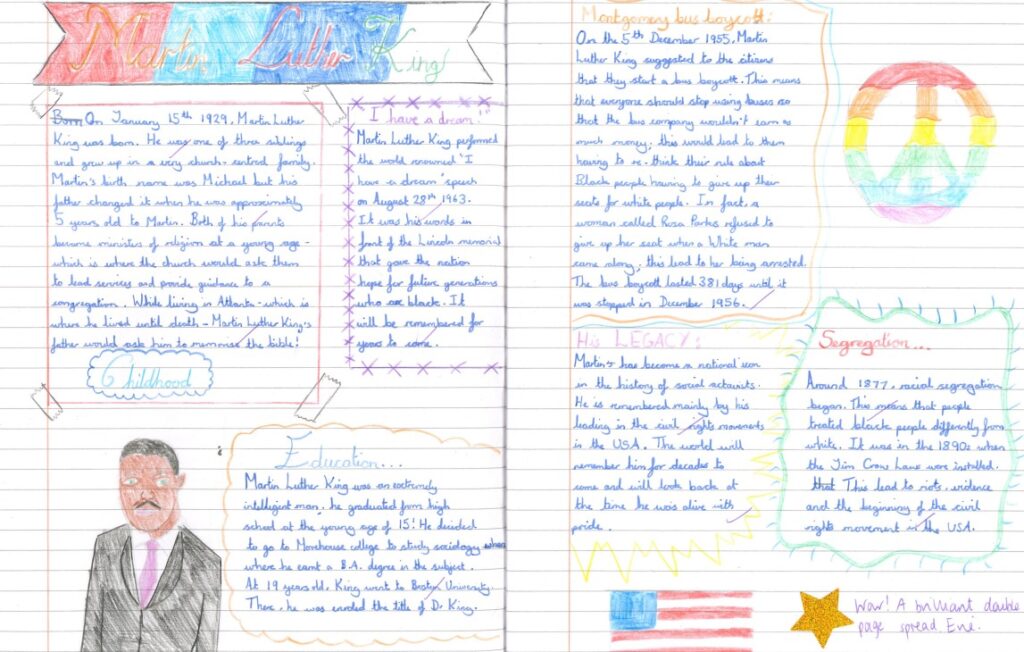 Martin Luther King
Born On January 15th 1929, Martin Luther
King was born. He was one of three siblings
and grew up in a very church-centred family.
Martin's birth name was Michael but his
father changed it when he was approximately
5 years old to Martin. Both of his parents
became ministers of religion at a young age -
which is where the church would ask them
to lead services and provide guidance to a
congregation. While living in Atlanta - which is
where he lived until death - Martin Luther King's
father would ask him to memorise the bible!
Childhood
'I have a dream!'
Martin Luther King performed
the world renowned 'I
have a dream' speech
on August 28th 1963.
It was his words in
front of the Lincoln memorial
that gave the nation
hope for future generations
who are black. It
will be remembered for
years to come.
Education...
Martin Luther King was an extremely
intelligent man, he graduated from high
school at the young age of 15! He decided
to go to Morehouse college to study sociology when
where he earnt a B.A. degree in the subject.
At 19 years old, King went to Boston University.
There, he was the title of Dr King.
Montgomery bus boycott:
On the 5th December 1955, Martin
Luther King suggested to the citizens
that they start a bus boycott. This means
that everyone should stop using buses so
that the bus company wouldn't earn as
much money; this would lead to them
having to re-think their rule about
Black people having to give up their
seats for white people. In fact, a
woman called Rosa Parkes refused to
give up her seat when a White man
came along; this lead to her being arrested.
The bus boycott lasted 381 days until it
was stopped in December 1956.
His LEGACY:
Martin has become a national icon
in the history of social activists.
He is remembered mainly by his
leading in the civil rights movements
in the USA. The world will
remember him for decades to
come and will look back at
the time he was alive with
pride.
Segregation...
Around 1877, racial segregation
began. This means that people
treated black people differently from
white. It was in the 1890s when
the Jim Crow Laws were installed.
that This lead to riots, violence
and the beginning of the civil
rights movement in the USA.
Wow! A brilliant double
page spread Evie.